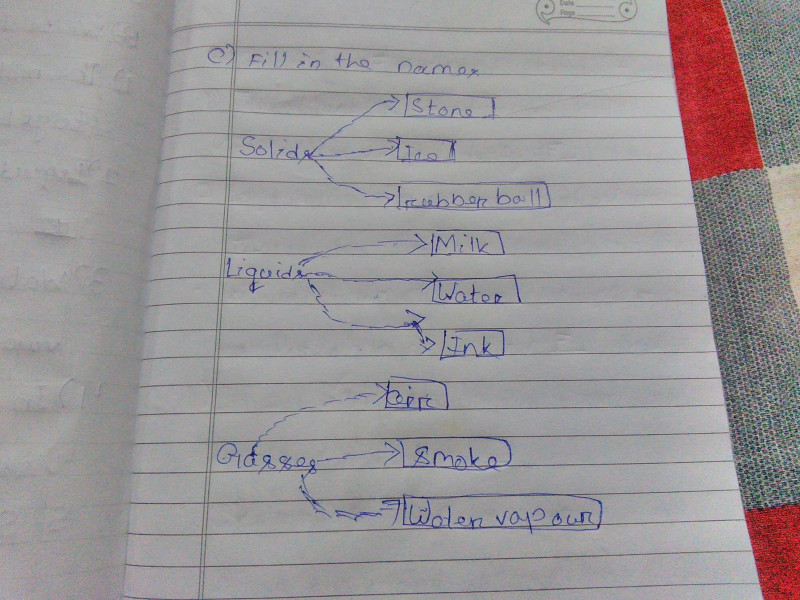 Date
Page
C) Fill in the names
Stone
Solids
Ice
rubber ball
Milk
Liquids
Water
Ink
air
Gasses
Smoke
Water vapour